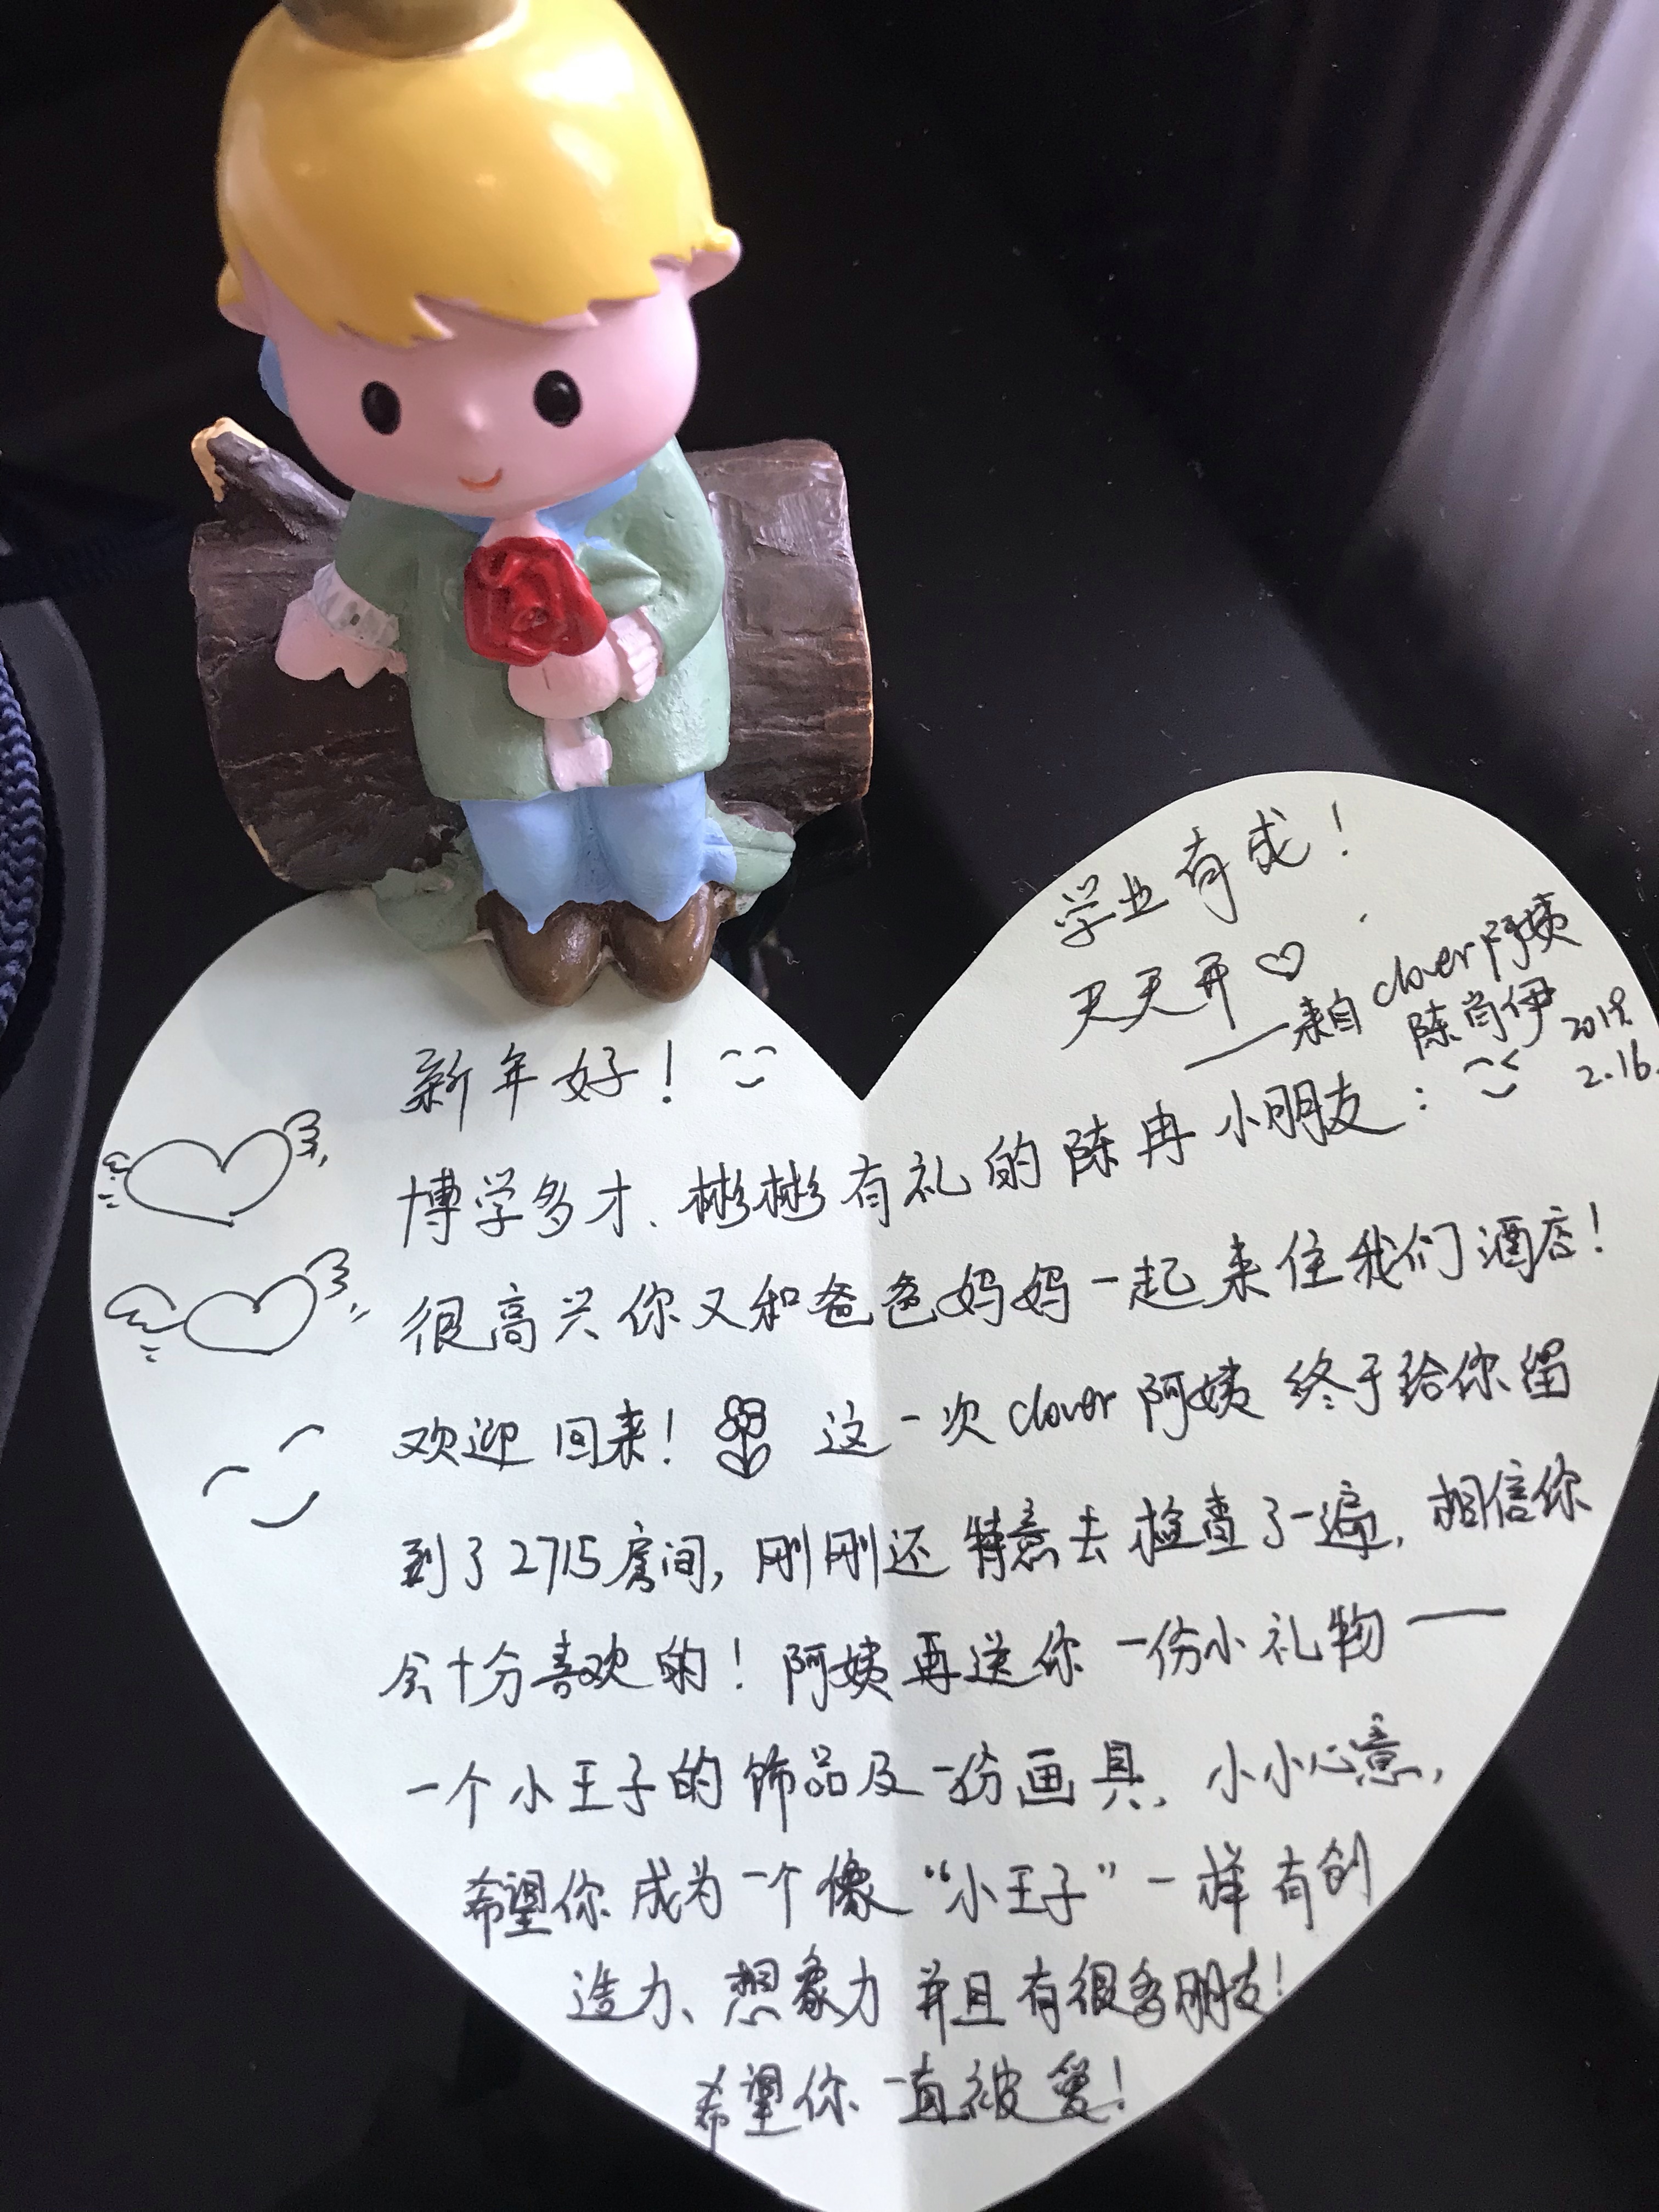 新年好！
博学多才、彬彬有礼的陈冉小朋友：
很高兴你又和爸爸妈妈一起来住我们酒店！
欢迎回来！这一次clover阿姨终于给你留
到了2715房间，刚刚还特意去检查了一遍，相信你
会十分喜欢的！阿姨再送你一份小礼物——
一个小王子的饰品及一份画具，小小心意，
希望你成为一个像“小王子”一样有创
造力、想象力并且有很多朋友！
希望你一直被爱！
学业有成！
天天开♡
——来自clover阿姨
陈尚伊
2018.
2.16.